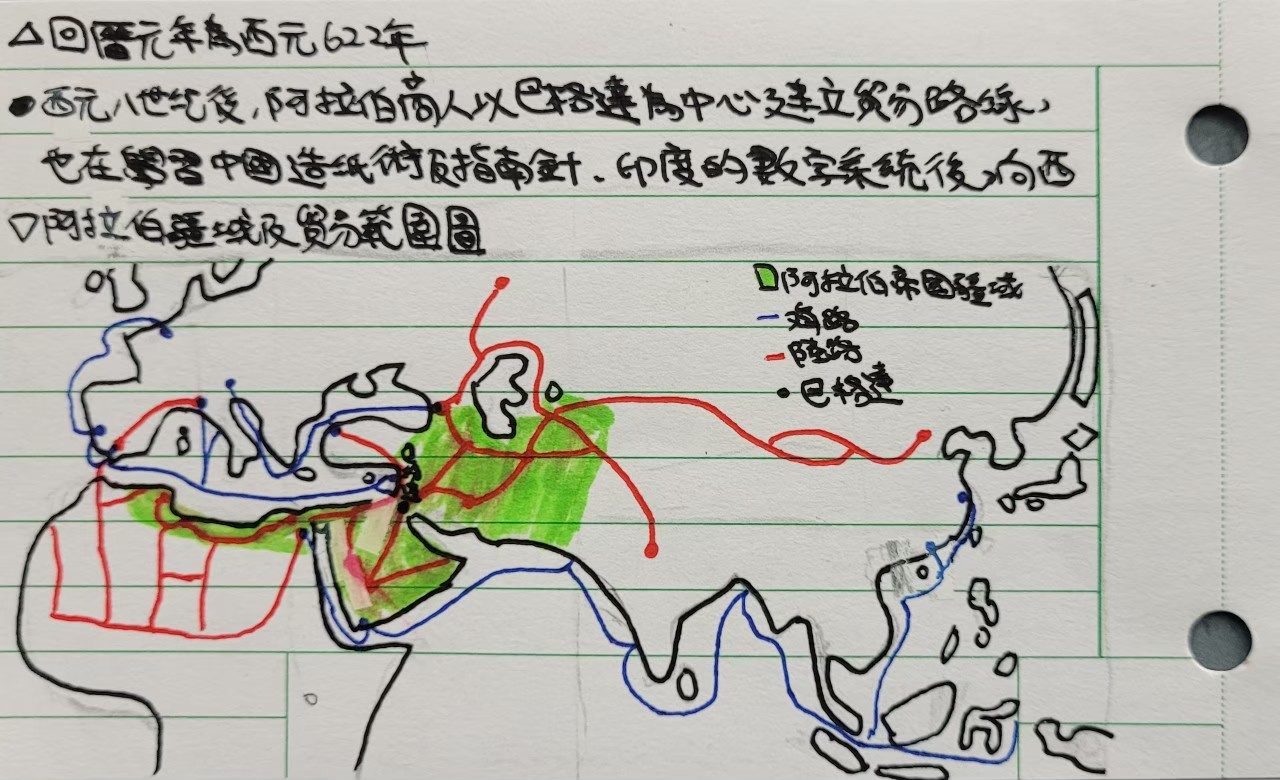 △回曆元年為西元622年
●西元八世紀後,阿拉伯商人以巴格達為中心建立貿易路線,
也在學習中國造紙術及指南針、印度的數字系統後,向西
▽阿拉伯疆域及貿易範圍圖
阿拉伯帝國疆域
海路
陸路
巴格達